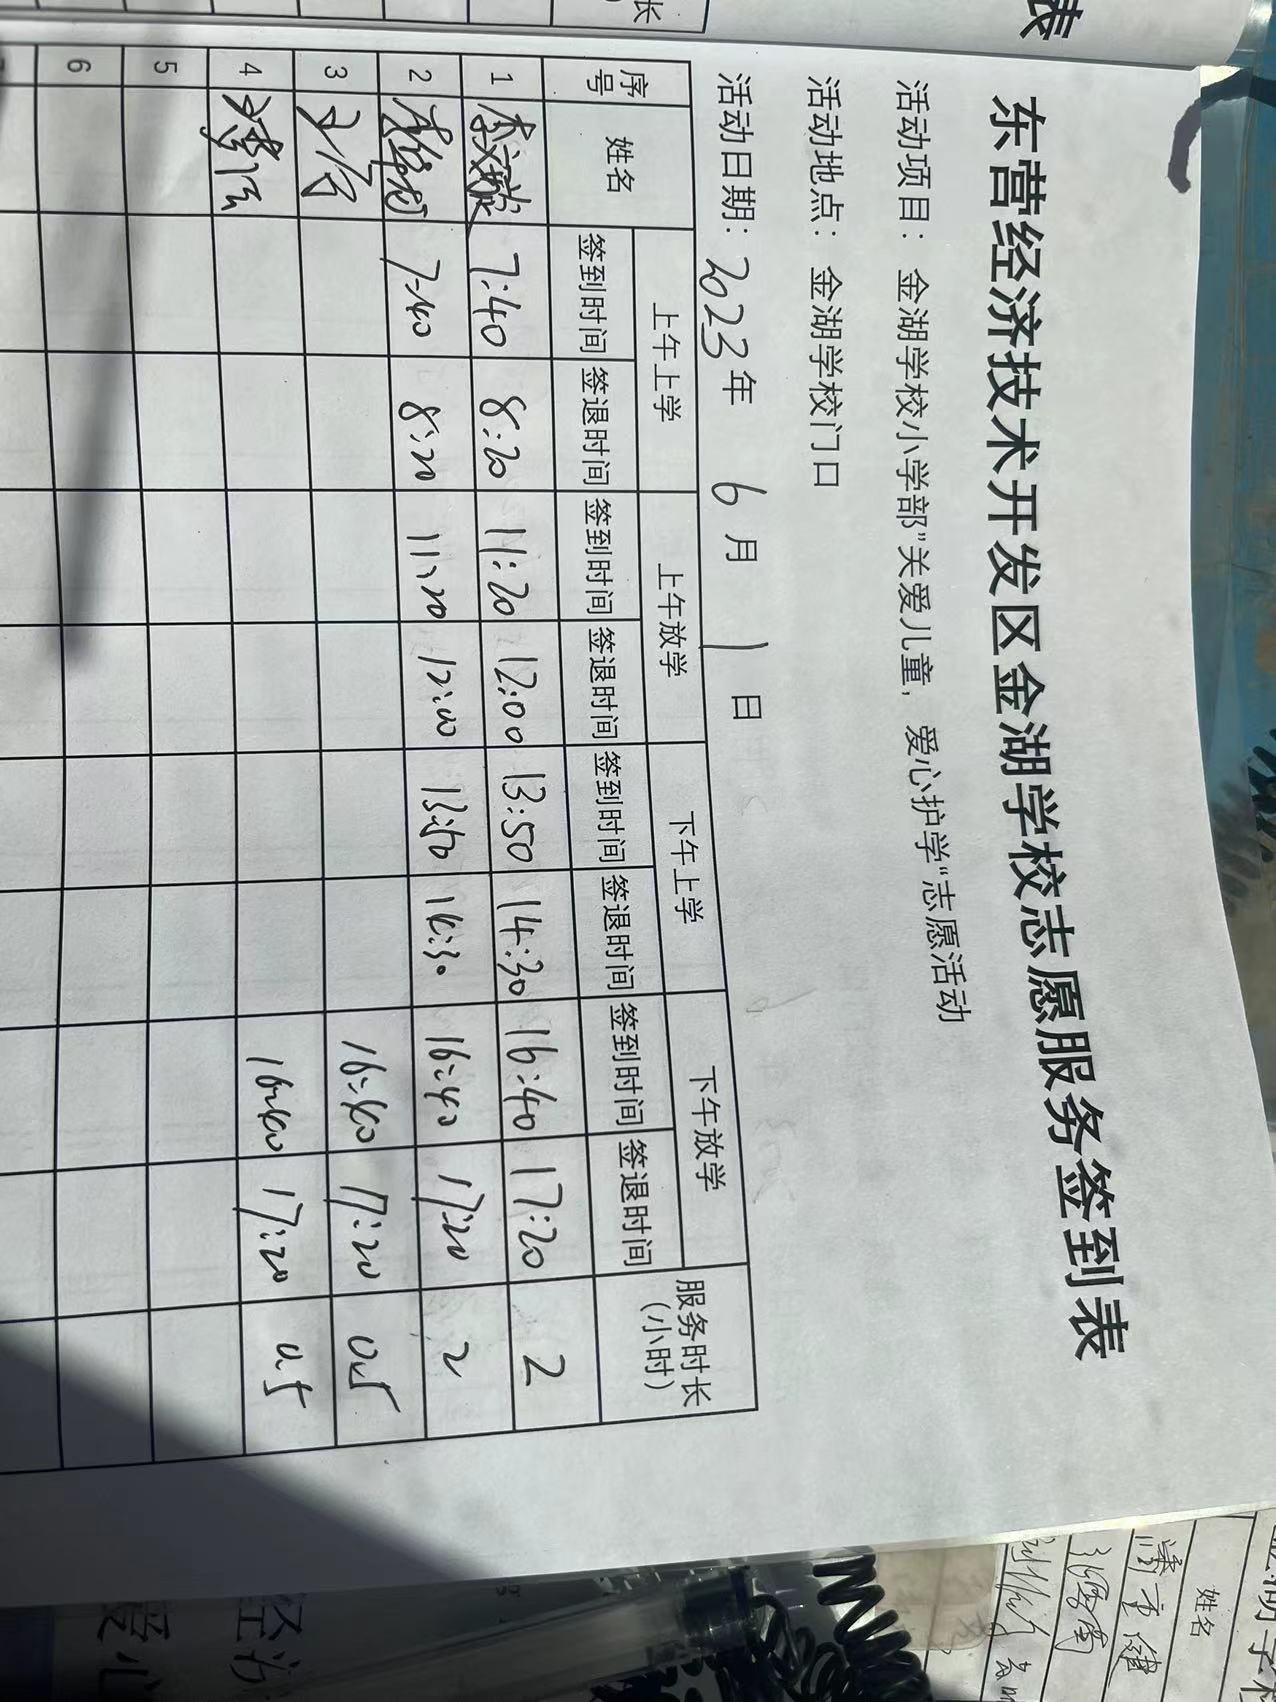 表
长
东营经济技术开发区金湖学校志愿服务签到表
活动项目： 金湖学校小学部"关爱儿童，爱心护学"志愿活动
活动地点： 金湖学校门口
活动日期： 2023 年 6 月 1 日
序号 姓名 上午上学 上午放学 下午上学 下午放学 服务时长（小时）
签到时间 签退时间 签到时间 签退时间 签到时间 签退时间 签到时间 签退时间
1 7:40 8:20 11:20 12:00 13:50 14:30 16:40 17:20 2
2 7:40 8:20 11:20 12:00 13:50 14:30 16:40 17:20 2
3 16:40 17:20 0.5
4 16:40 17:20 0.5
5
6
姓名